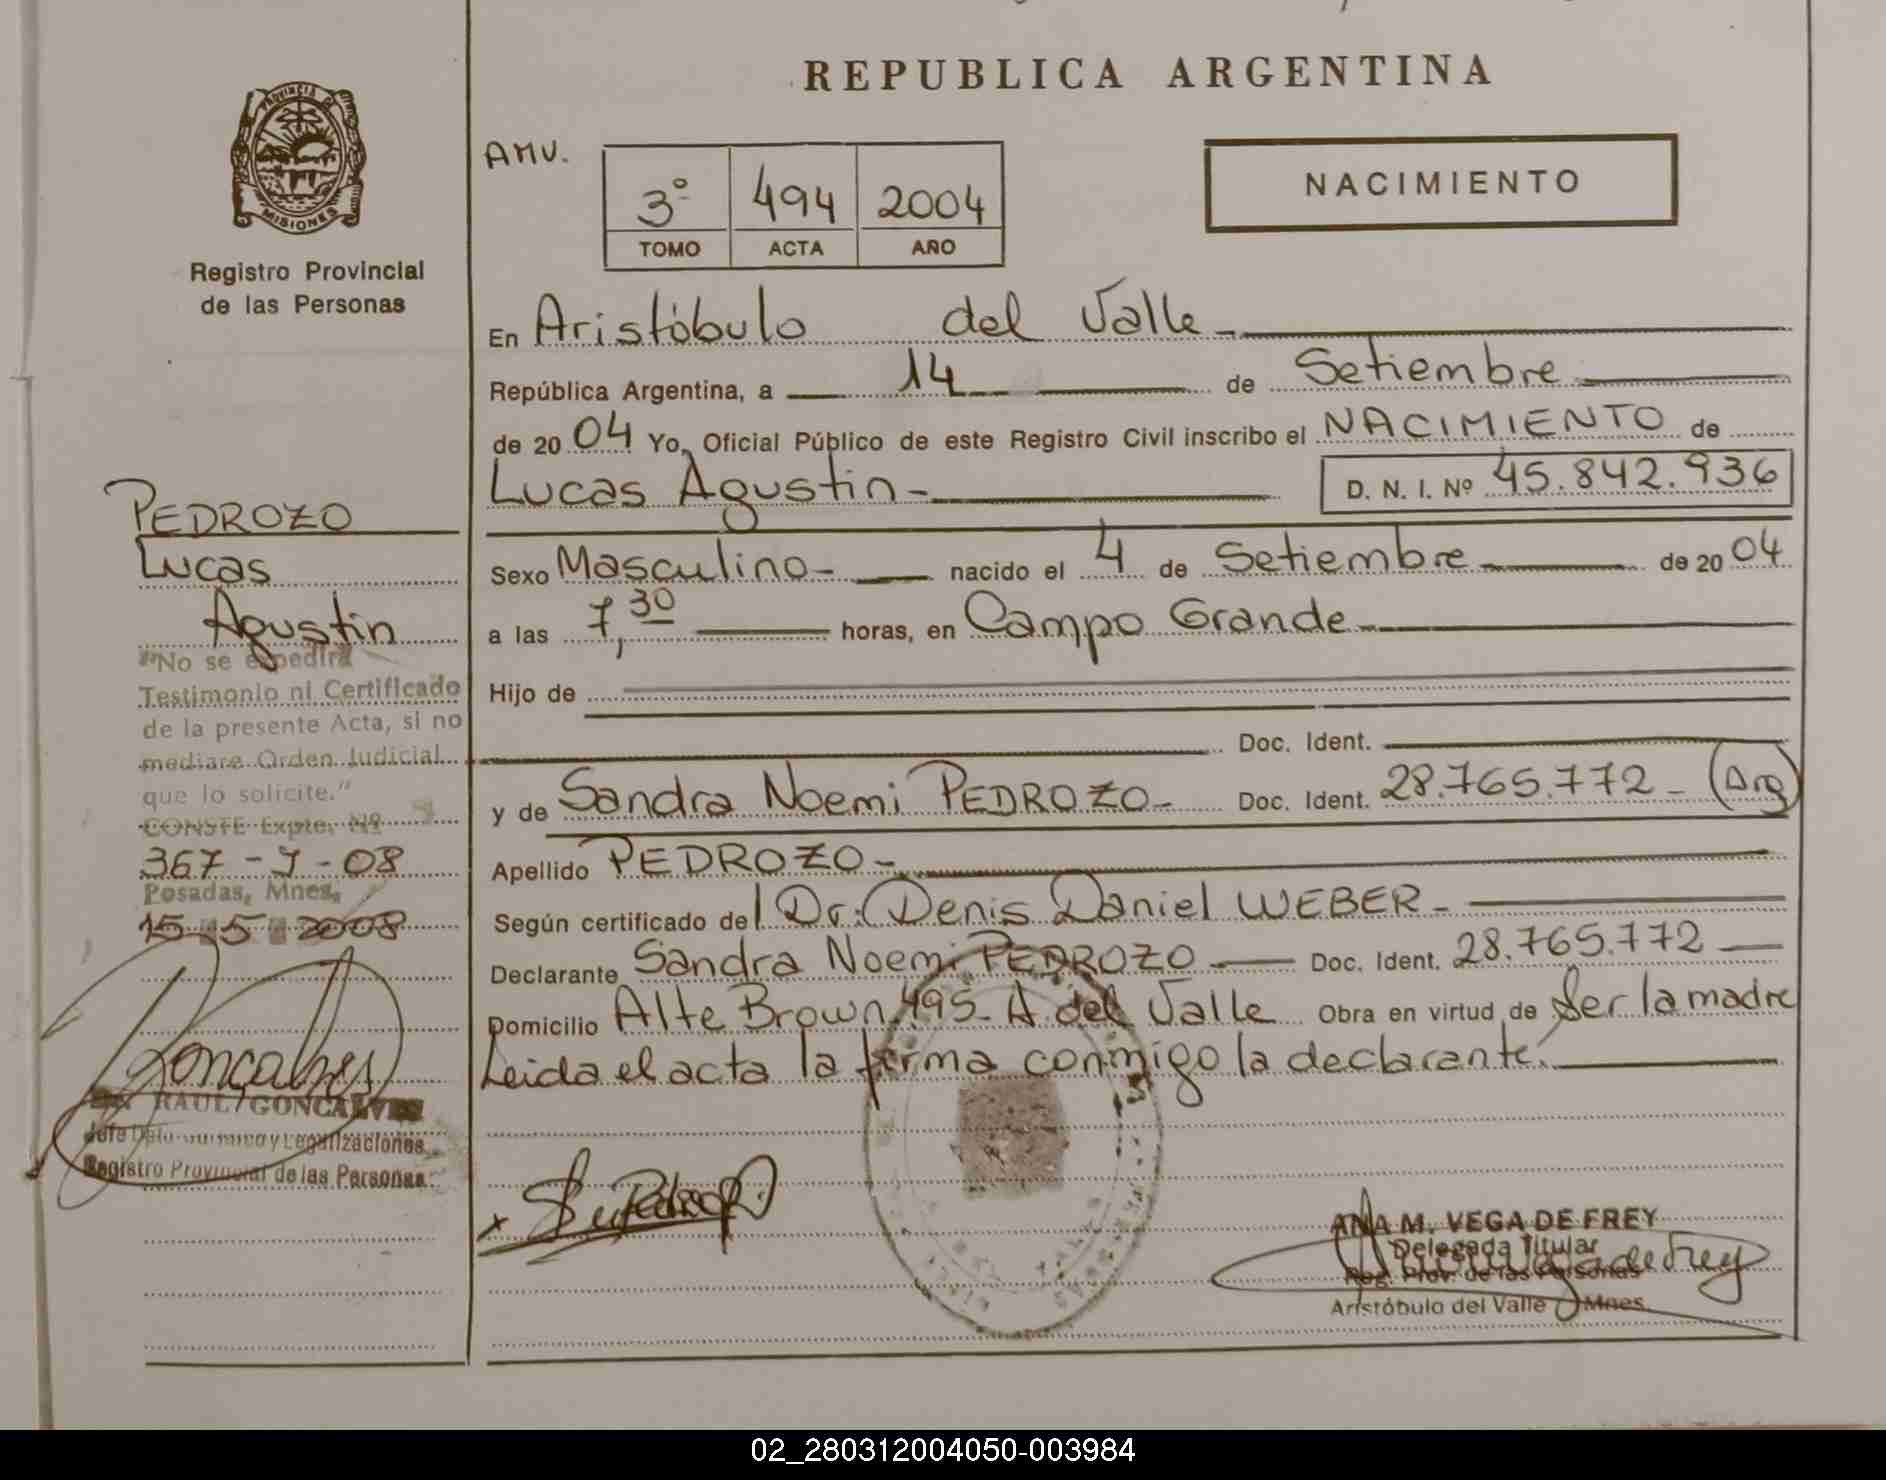 REPUBLICA ARGENTINA
PROVINCIA DE
MISIONES
Registro Provincial
de las Personas
AMV.
3º 494 2004
TOMO ACTA AÑO
NACIMIENTO
En Aristóbulo del Valle
República Argentina, a 14 de Setiembre
de 2004 Yo, Oficial Público de este Registro Civil inscribo el NACIMIENTO de
Lucas Agustin D. N. I. Nº 45.842.936
Sexo Masculino nacido el 4 de Setiembre de 2004
a las 7,30 horas, en Campo Grande
Hijo de
Doc. Ident.
y de Sandra Noemi PEDROZO Doc. Ident. 28.765.772 - (Arg)
Apellido PEDROZO
Según certificado del Dr. Denis Daniel WEBER
Declarante Sandra Noemi PEDROZO Doc. Ident. 28.765.772
Domicilio Alte Brown 495- A. del Valle Obra en virtud de Ser la madre
Leida el acta la firma conmigo la declarante.
ANA M. VEGA DE FREY
Delegada Titular
Reg. Prov. de las Personas
Aristóbulo del Valle Mnes.
PEDROZO
Lucas
Agustin
"No se expedirá
Testimonio ni Certificado
de la presente Acta, si no
mediare Orden Judicial
que lo solicite."
CONSTE Expte. Nº
367 - J - 08
Posadas, Mnes.
15 5 2008
Goncalves
RAUL GONCALVES
Jefe Dpto. y Legalizaciones
Registro Provincial de las Personas
02_280312004050-003984